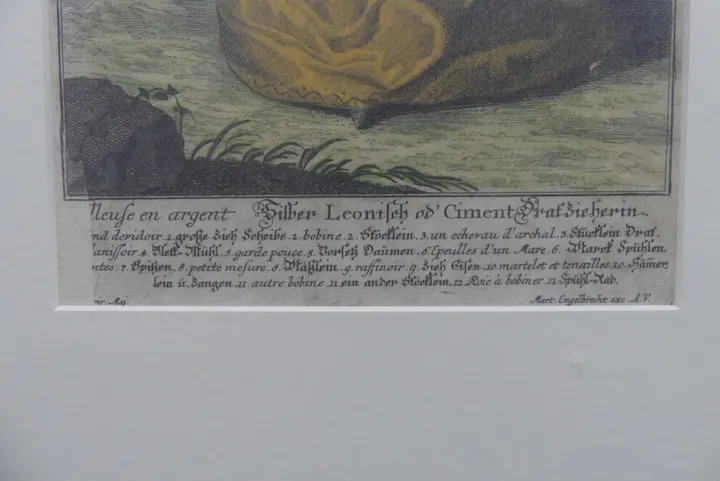 leuse en argent Silber Leonisch od' Ciment Dratzieherin.
nd devidoir. 1. große Zieh Scheibe. 2. bobine. 2. Stöcklein. 3. un echerau d'archal. 3. Stücklein Drat.
lanissoir. 4. Plett-Mühl. 5. garde pouce. 5. Vorsetz Daumen. 6. Epeulles d'un Marc. 6. Marck Spühlen.
ntes. 7. Spitzen. 8. petite mesure. 8. Mäßlein. 9. raffinoir. 9. Zieh Eisen. 10. martelet et tenailles. 10. Hämer,
lein ü. Zangen. 11. autre bobine. 11. ein ander Stöcklein. 12. Roüe à bobiner. 12. Spühl-Rad.
Maj. Mart. Engelbrecht exc. A.V.